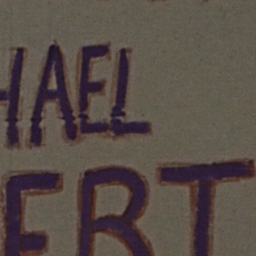 HAEL
EBT